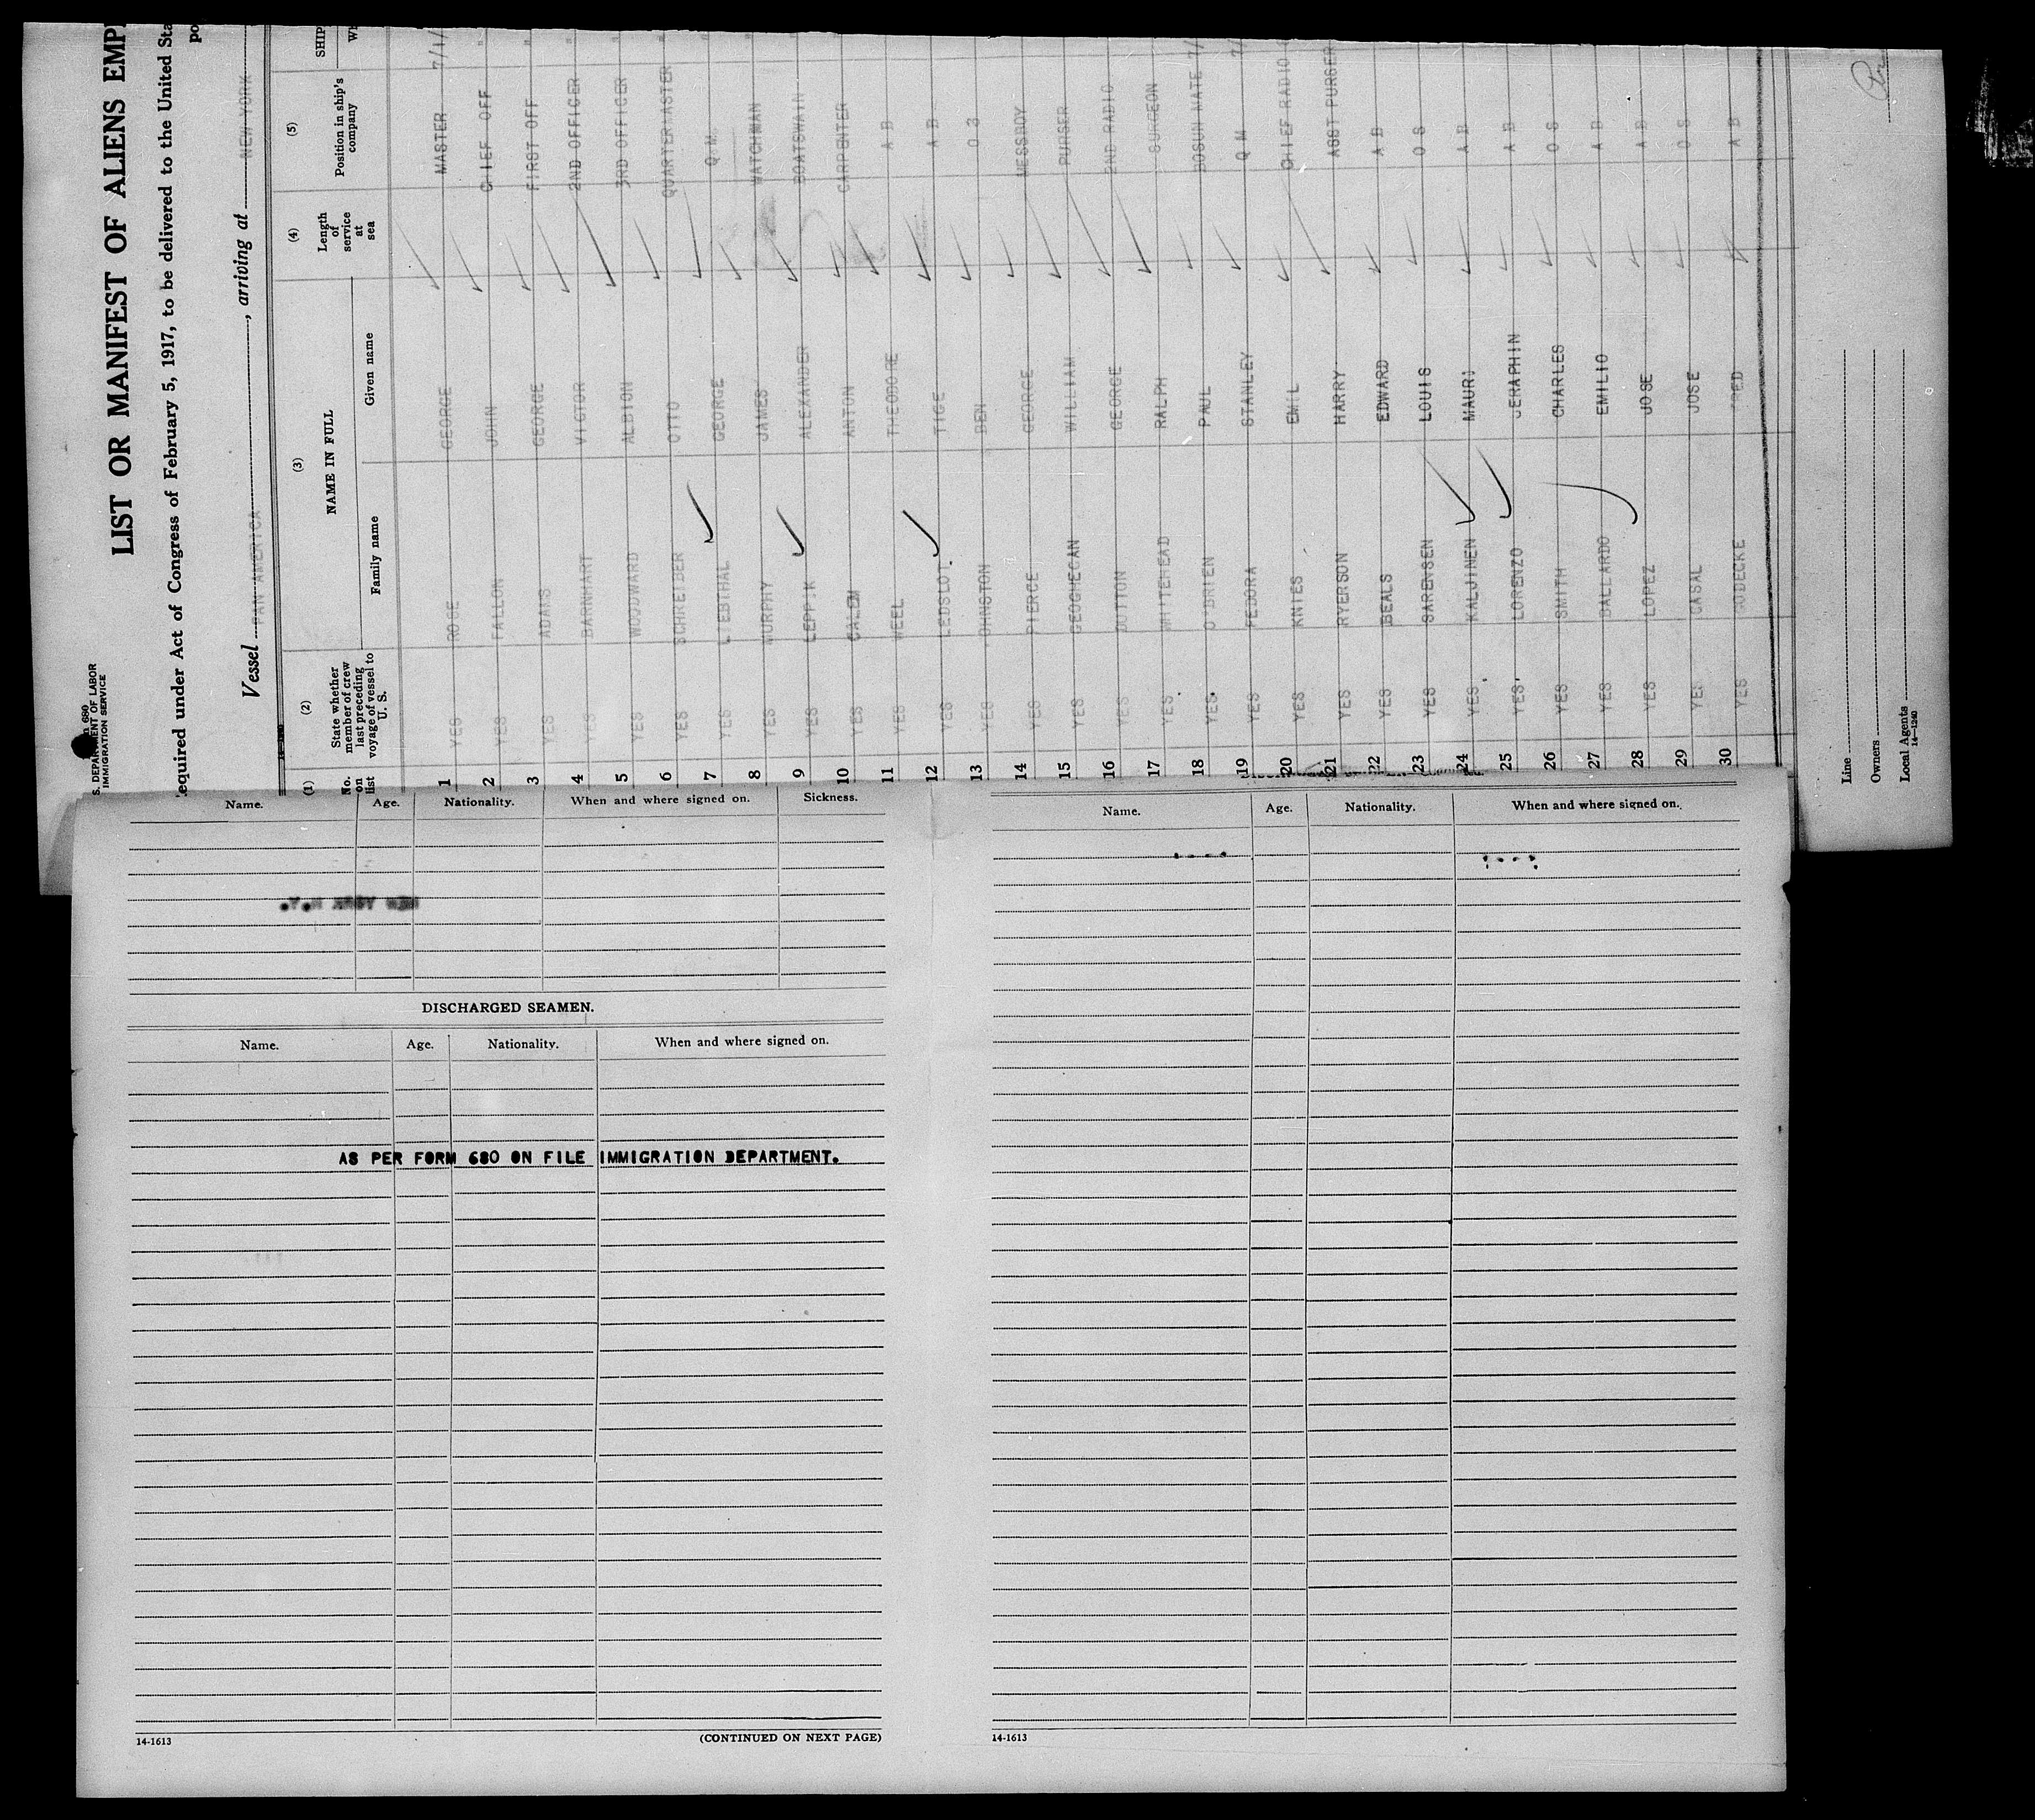 LIST OR MANIFEST OF ALIENS EMP
S. DEPARTMENT OF LABOR
IMMIGRATION SERVICE
equired under Act of Congress of February 5, 1917, to be delivered to the United Sta
po
Vessel PAN AMERICA, arriving at NEW YORK
(1) (2) (3) (4) (5)
No. on list
State whether member of crew last preceding voyage of vessel to U. S.
NAME IN FULL
Family name Given name
Length of service at sea
Position in ship's company
SHIP
1 YES ROSE GEORGE MASTER 7/1/
2 YES FALLON JOHN CHIEF OFF "
3 YES ADAMS GEORGE FIRST OFF "
4 YES BARNHART VICTOR 2ND OFFICER "
5 YES WOODWARD ALBION 3RD OFFICER "
6 YES SCHREIBER OTTO QUARTERMASTER "
7 YES LIEBTHAL GEORGE Q.M. "
8 YES MURPHY JAMES WATCHMAN "
9 YES LEPPIK ALEXANDER BOATSWAIN "
10 YES CALEM ANTON CARPENTER
11 YES WEEL THEODORE A B
12 YES TIGE A B
13 YES JOHNSTON BEN O S
14 YES PIERCE GEORGE MESSBOY
15 YES GEOGHEGAN WILLIAM PURSER
16 YES DUTTON GEORGE 2ND RADIO
17 YES WHITEHEAD RALPH SURGEON
18 YES O'BRIEN PAUL BOSUN MATE 7/
19 YES FEDORA STANLEY Q M 7/
20 YES KNIES EMIL CHIEF RADIO
21 YES RYERSON HARRY ASST PURSER
22 YES BEALS EDWARD A B
23 YES SARENSEN LOUIS O S
24 YES KALJINEN MAURI A B
25 YES LORENZO JERAPHIN A B
26 YES SMITH CHARLES O S
27 YES BALLARDO EMILIO A B
28 YES LOPEZ JOSE A B
29 YES CASAL JOSE O S
30 YES FRED A B
Line
Owners
Local Agents
14-1240
Name. Age. Nationality. When and where signed on. Sickness.
NEW YORK N.Y.
DISCHARGED SEAMEN.
Name. Age. Nationality. When and where signed on.
AS PER FORM 680 ON FILE IMMIGRATION DEPARTMENT.
14-1613 (CONTINUED ON NEXT PAGE)
Name. Age. Nationality. When and where signed on.
14-1613